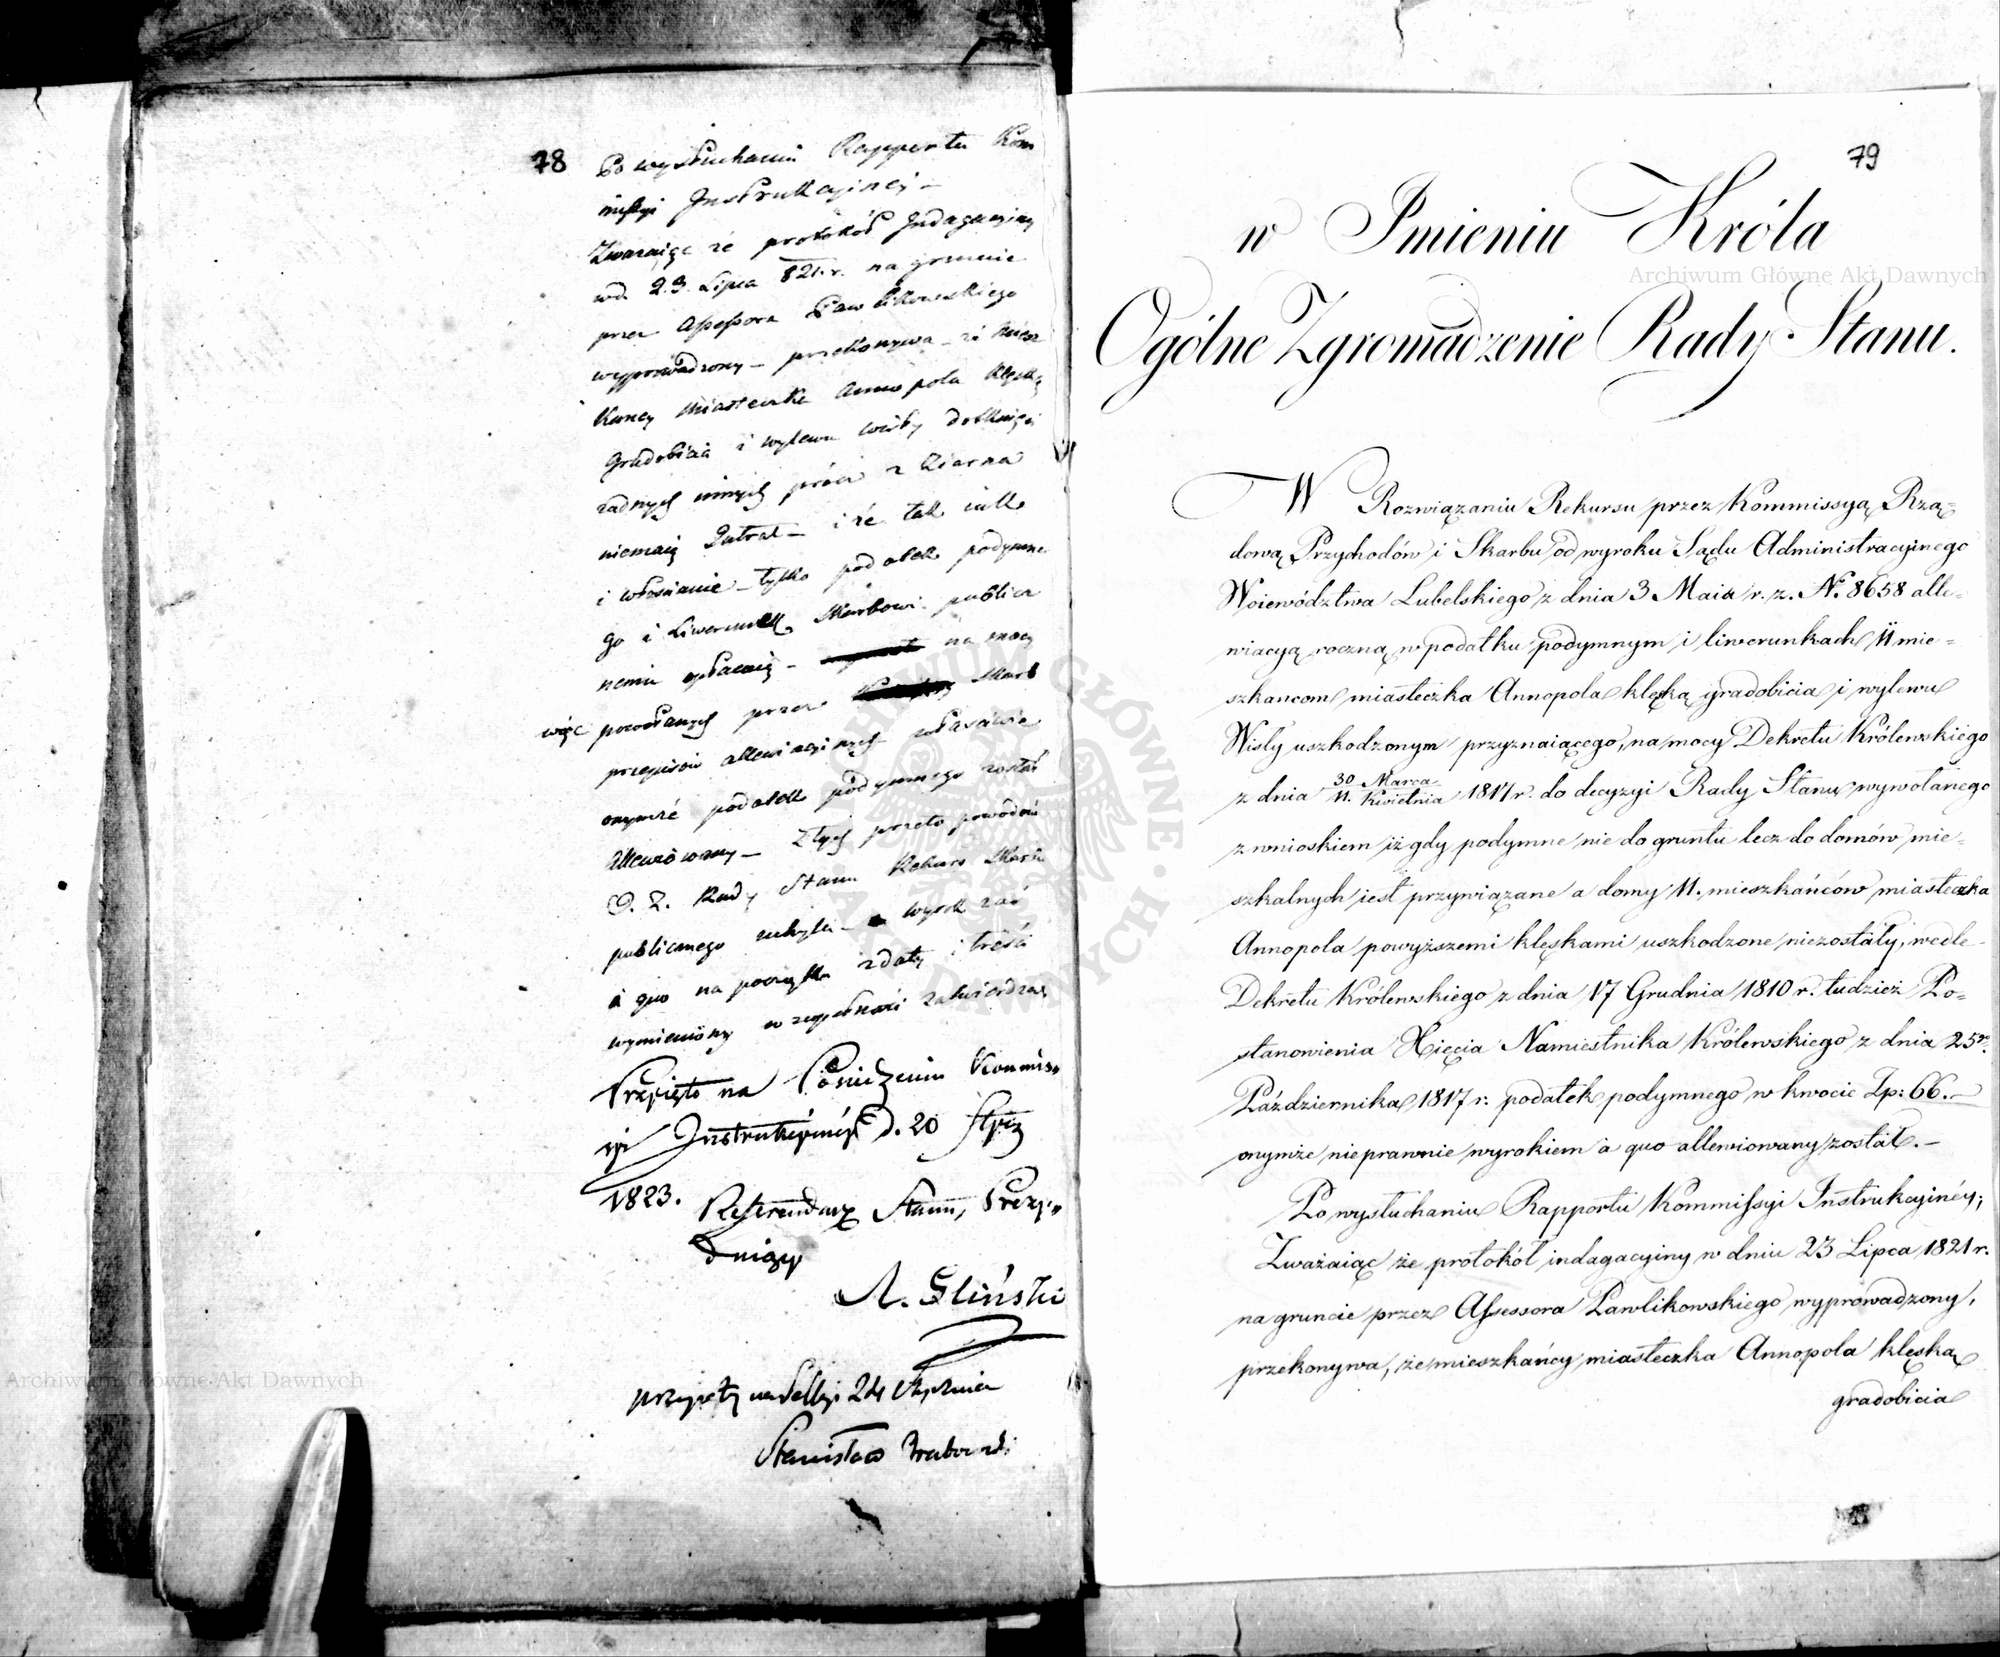 78
Po wysłuchaniu Rapportu Kom
missyi Instrukcyinej –
Zwazaiąc że protokół Indagacyiny
wd. 23. Lipca 821. r. na gruncie
przez Assessora Pawlikowskiego
wyprowadzony – przekonywa – że miesz
kancy Miasteczka Annopola klęską
Gradobicia i wylewu Wisły dotknięci
żadnych innych prócz z Ziarna
niemaią Intrat – i że tak iak
i włościanie – tylko podatek podymne
go i Liwerunek Skarbowi public
nemu opłacaią – na mocy
więc powołanych przez Skarb
przepisów allewiacyinych własciwie
onymże podatek podymnego został
Allewiowany – Z tych przeto powodów
O. Z. Rady Stanu Rekurs Skarbu
publicznego uchyla – wyrok zaś
à quo na początku z daty i treści
wymieniony w zupełności zatwierdza
Przyięto na Posiedzeniu Kommis-
syi Instrukcyinéy d. 20 Stycz
1823. Referendarz Stanu, Prezy-
duiący
A. Śliński
przyięty na Sessyi 24 Stycznia
Stanisław Grabowski
79
w Imieniu Króla
Ogólne Zgromadzenie Rady Stanu.
W Rozwiązaniu Rekursu przez Kommissyą Rzą-
dową Przychodów i Skarbu od wyroku Sądu Administracyinego
Woiewództwa Lubelskiego z dnia 3 Maia r. z. N. 8658 alle-
wiacyą roczną w podatku podymnym i liwerunkach 11 mie-
szkancom miasteczka Annopola klęską gradobicia i wylewu
Wisły uszkodzonym przyznaiącego, na mocy Dekretu Królewskiego
z dnia 30 Marca / 11. Kwietnia 1817 r. do decyzyi Rady Stanu wywołanego
z wnioskiem iż gdy podymne nie do gruntu lecz do domów mie-
szkalnych iest przywiązane a domy 11. mieszkańców miasteczka
Annopola powyższemi klęskami uszkodzone niezostały, wedle
Dekretu Królewskiego z dnia 17 Grudnia 1810 r. tudzież Po-
stanowienia Xięcia Namiestnika Królewskiego z dnia 25go.
Października 1817 r. podatek podymnego w kwocie Zp: 66. –
onymże nieprawnie wyrokiem à quo allewiowany został. –
Po wysłuchaniu Rapportu Kommissyi Instrukcyinéy;
Zważaiąc że protokół indagacyiny w dniu 23 Lipca 1821 r.
na gruncie przez Assessora Pawlikowskiego wyprowadzony,
przekonywa, że mieszkańcy miasteczka Annopola klęską
gradobicia